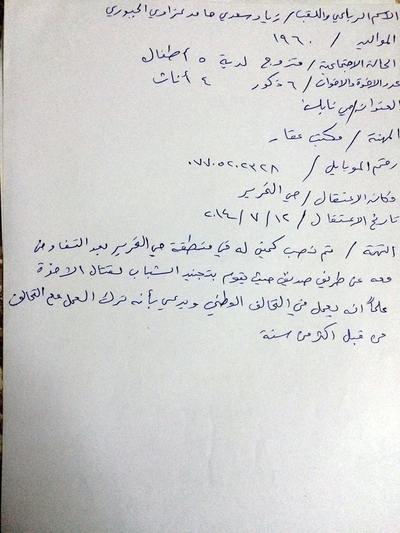 الاسم الرباعي واللقب / زياد سعدي حامد عزاوي الجبوري
المواليد / ١٩٦٠
الحالة الاجتماعية / متزوج لديه ٥ أطفال
عدد الاخوة والاخوات / ٦ ذكور ٤ أناث
العنوان / حي نابلس
المهنة / مكتب عقار
رقم الموبايل / ٠٧٧٠٥٢٠٢٣٢٨
مكان الاعتقال / حي التحرير
تاريخ الاعتقال / ١٢ / ٧ / ٢٠١٤
التهمة / تم نصب كمين له في منطقة حي التحرير بعد التفاوض
معه عن طريق صديق حيث يقوم بتجنيد الشباب لقتال الاخوة
علماً انه يعمل في التحالف الوطني ويدعي بأنه ترك العمل مع التحالف
من قبل اكثر من سنة